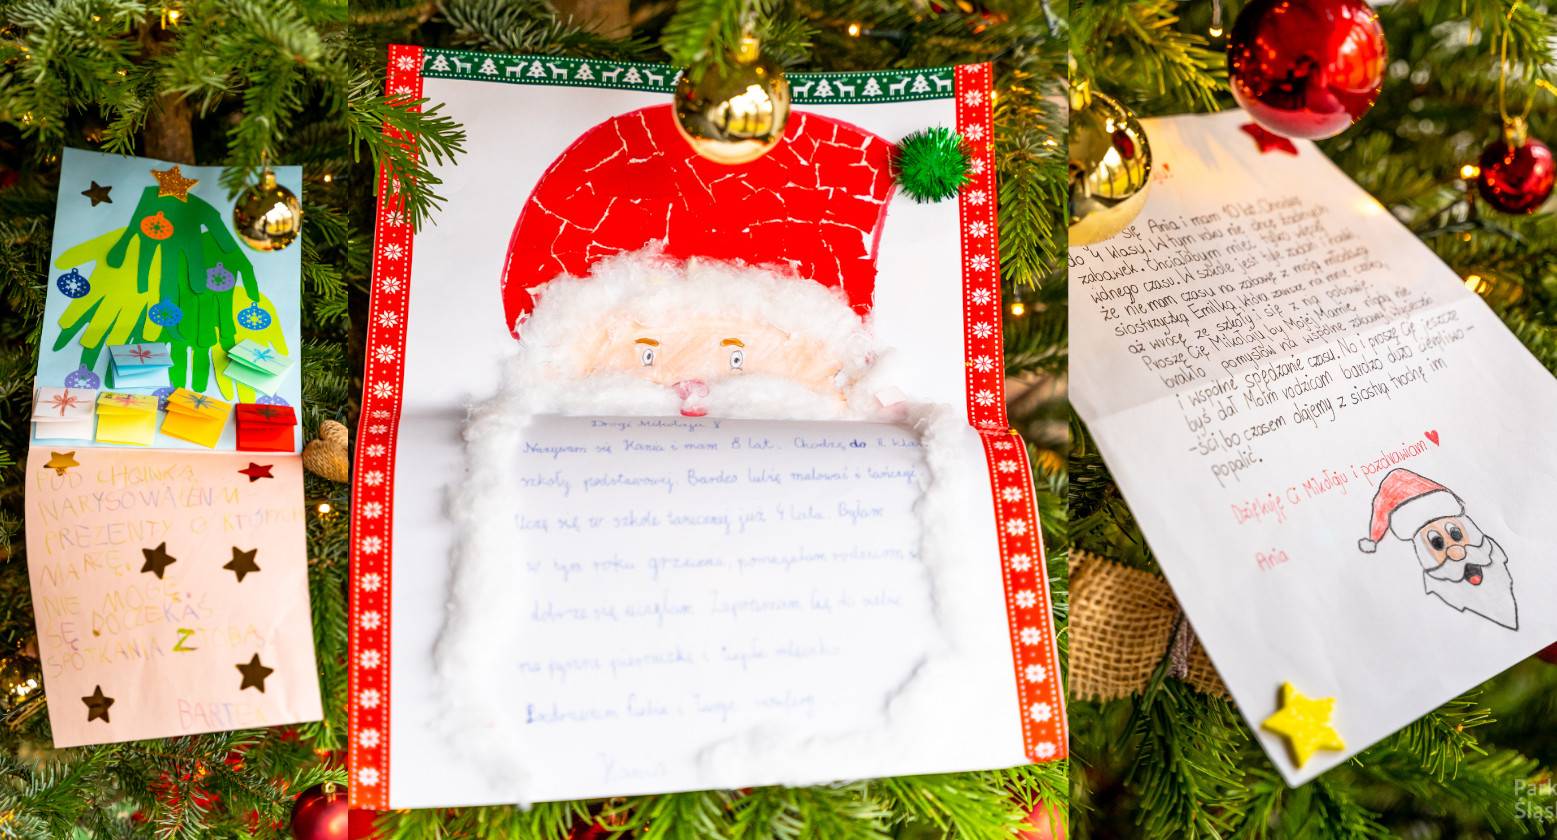 POD CHOINKĄ
NARYSOWAŁEM
PREZENTY O KTÓRYCH
MARZĘ.
NIE MOGĘ
SIĘ DOCZEKAĆ
SPOTKANIA Z TOBĄ
BARTEK
Drogi Mikołaju
Nazywam się Hania i mam 8 lat. Chodzę do II klasy
szkoły podstawowej. Bardzo lubię malować i tańczyć
Uczę się w szkole tanecznej już 4 lata. Byłam
w tym roku grzeczna, pomagałam rodzicom
dobrze się uczyłam. Zapraszam Cię do siebie
na pyszne pierniczki i ciepłe mleczko.
Pozdrawiam Ciebie i Twoje
Hania
się Ania i mam 10 lat. Chodzę
do 4 klasy. W tym roku nie chcę żadnych
zabawek. Chciałabym mieć tylko więcej
wolnego czasu. W szkole jest tyle zadań i nauki
że nie mam czasu na zabawę z moją młodszą
siostrzyczką Emilką, która zawsze na mnie czeka,
aż wrócę ze szkoły i się z nią pobawię.
Proszę Cię Mikołaju by Mojej Mamie nigdy nie
brakło pomysłów na wspólne zabawy,
i wspólne spędzanie czasu. No i proszę Cię jeszcze
byś dał Moim rodzicom bardzo dużo cierpliwo-
-ści bo czasem dajemy z siostrą trochę im
popalić.
Dziękuję Ci Mikołaju i pozdrawiam
Ania
Park
Śląs